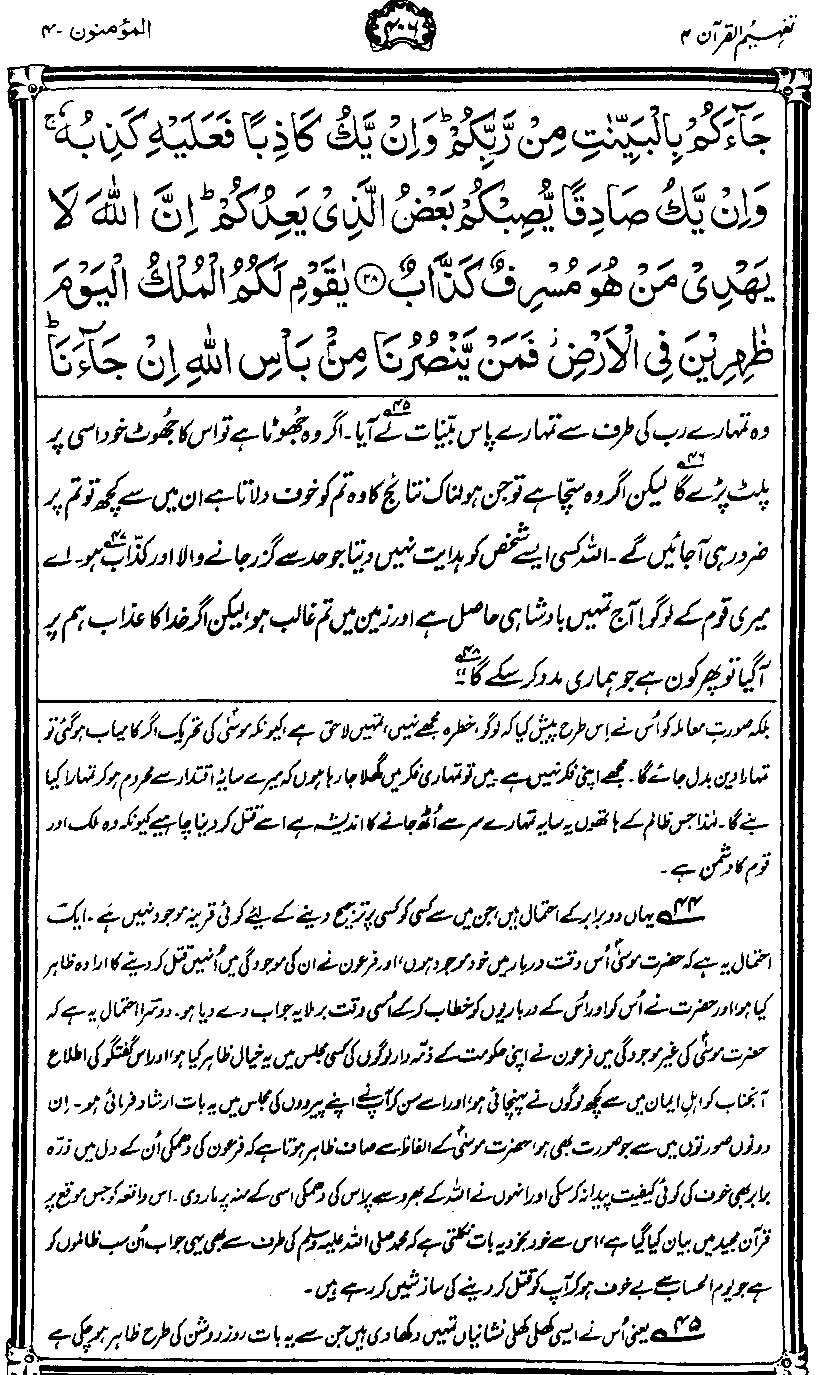 تفہیم القرآن ۴
۴۰۶
المؤمنون ۴۰
جَآءَكُمْ بِالْبَيِّنٰتِ مِنْ رَّبِّكُمْ ؕ وَاِنْ يَّكُ كَاذِبًا فَعَلَيْهِ كَذِبُهٗ ۚ
وَاِنْ يَّكُ صَادِقًا يُّصِبْكُمْ بَعْضُ الَّذِىْ يَعِدُكُمْ ؕ اِنَّ اللّٰهَ لَا
يَهْدِىْ مَنْ هُوَ مُسْرِفٌ كَذَّابٌ ﴿۲۸﴾ يٰقَوْمِ لَكُمُ الْمُلْكُ الْيَوْمَ
ظٰهِرِيْنَ فِى الْاَرْضِ ؗ فَمَنْ يَّنْصُرُنَا مِنْۢ بَاْسِ اللّٰهِ اِنْ جَآءَنَا ؕ
وہ تمہارے رب کی طرف سے تمہارے پاس بیّنات لے آیا۴۵۔ اگر وہ جھوٹا ہے تو اس کا جھوٹ خود اسی پر
پلٹ پڑے گا۴۶ لیکن اگر وہ سچّا ہے تو جن ہولناک نتائج کا وہ تم کو خوف دلاتا ہے ان میں سے کچھ تو تم پر
ضرور ہی آجائیں گے۔ اللہ کسی ایسے شخص کو ہدایت نہیں دیتا جو حد سے گزر جانے والا اور کذّاب ہو۴۷۔ اے
میری قوم کے لوگو! آج تمہیں بادشاہی حاصل ہے اور زمین میں تم غالب ہو، لیکن اگر خدا کا عذاب ہم پر
آگیا تو پھر کون ہے جو ہماری مدد کر سکے گا۴۸"
بلکہ صورتِ معاملہ کو اُس نے اِس طرح پیش کیا کہ لوگو، خطرہ مجھے نہیں، تمہیں لاحق ہے، کیونکہ موسیٰؑ کی تحریک اگر کامیاب ہو گئی تو
تمہارا دین بدل جائے گا۔ مجھے اپنی فکر نہیں ہے۔ میں تو تمہاری فکر میں گھلا جا رہا ہوں کہ میرے سایۂ اقتدار سے محروم ہو کر تمہارا کیا
بنے گا۔ لہٰذا جس ظالم کے ہاتھوں یہ سایہ تمہارے سر سے اُٹھ جانے کا اندیشہ ہے اسے قتل کر دینا چاہیے کیونکہ وہ ملک اور
قوم کا دشمن ہے۔
۴۴ یہاں دو برابر کے احتمال ہیں، جن میں سے کسی کو کسی پر ترجیح دینے کے لیئے کوئی قرینہ موجود نہیں ہے۔ ایک
احتمال یہ ہے کہ حضرت موسیٰؑ اُس وقت دربار میں خود موجود ہوں، اور فرعون نے ان کی موجودگی میں اُنہیں قتل کر دینے کا ارادہ ظاہر
کیا ہو، اور حضرت نے اُس کو اور اُس کے درباریوں کو خطاب کر کے اُسی وقت برملا یہ جواب دے دیا ہو۔ دوسرا احتمال یہ ہے کہ
حضرت موسیٰؑ کی غیر موجودگی میں فرعون نے اپنی حکومت کے ذمّہ دار لوگوں کی کسی مجلس میں یہ خیال ظاہر کیا ہو، اور اس گفتگو کی اطلاع
آنجناب کو اہلِ ایمان میں سے کچھ لوگوں نے پہنچائی ہو، اور اسے سن کر آپؑ نے اپنے پیرووں کی مجلس میں یہ بات ارشاد فرمائی ہو۔ اِن
دونوں صورتوں میں سے جو صورت بھی ہو، حضرت موسیٰؑ کے الفاظ سے صاف ظاہر ہوتا ہے کہ فرعون کی دھمکی اُن کے دل میں ذرّہ
برابر بھی خوف کی کوئی کیفیت پیدا نہ کر سکی اور انہوں نے اللہ کے بھروسے پر اس کی دھمکی اسی کے منہ پر مار دی۔ اس واقعہ کو جس موقع پر
قرآن مجید میں بیان کیا گیا ہے، اس سے خود بخود یہ بات نکلتی ہے کہ محمد صلی اللہ علیہ وسلم کی طرف سے بھی یہی جواب اُن سب ظالموں کو
ہے جو یوم الحساب سے بے خوف ہو کر آپ کو قتل کر دینے کی سازشیں کر رہے ہیں۔
۴۵ یعنی اُس نے ایسی کھلی کھلی نشانیاں تمہیں دکھا دی ہیں جن سے یہ بات روزِ روشن کی طرح ظاہر ہو چکی ہے